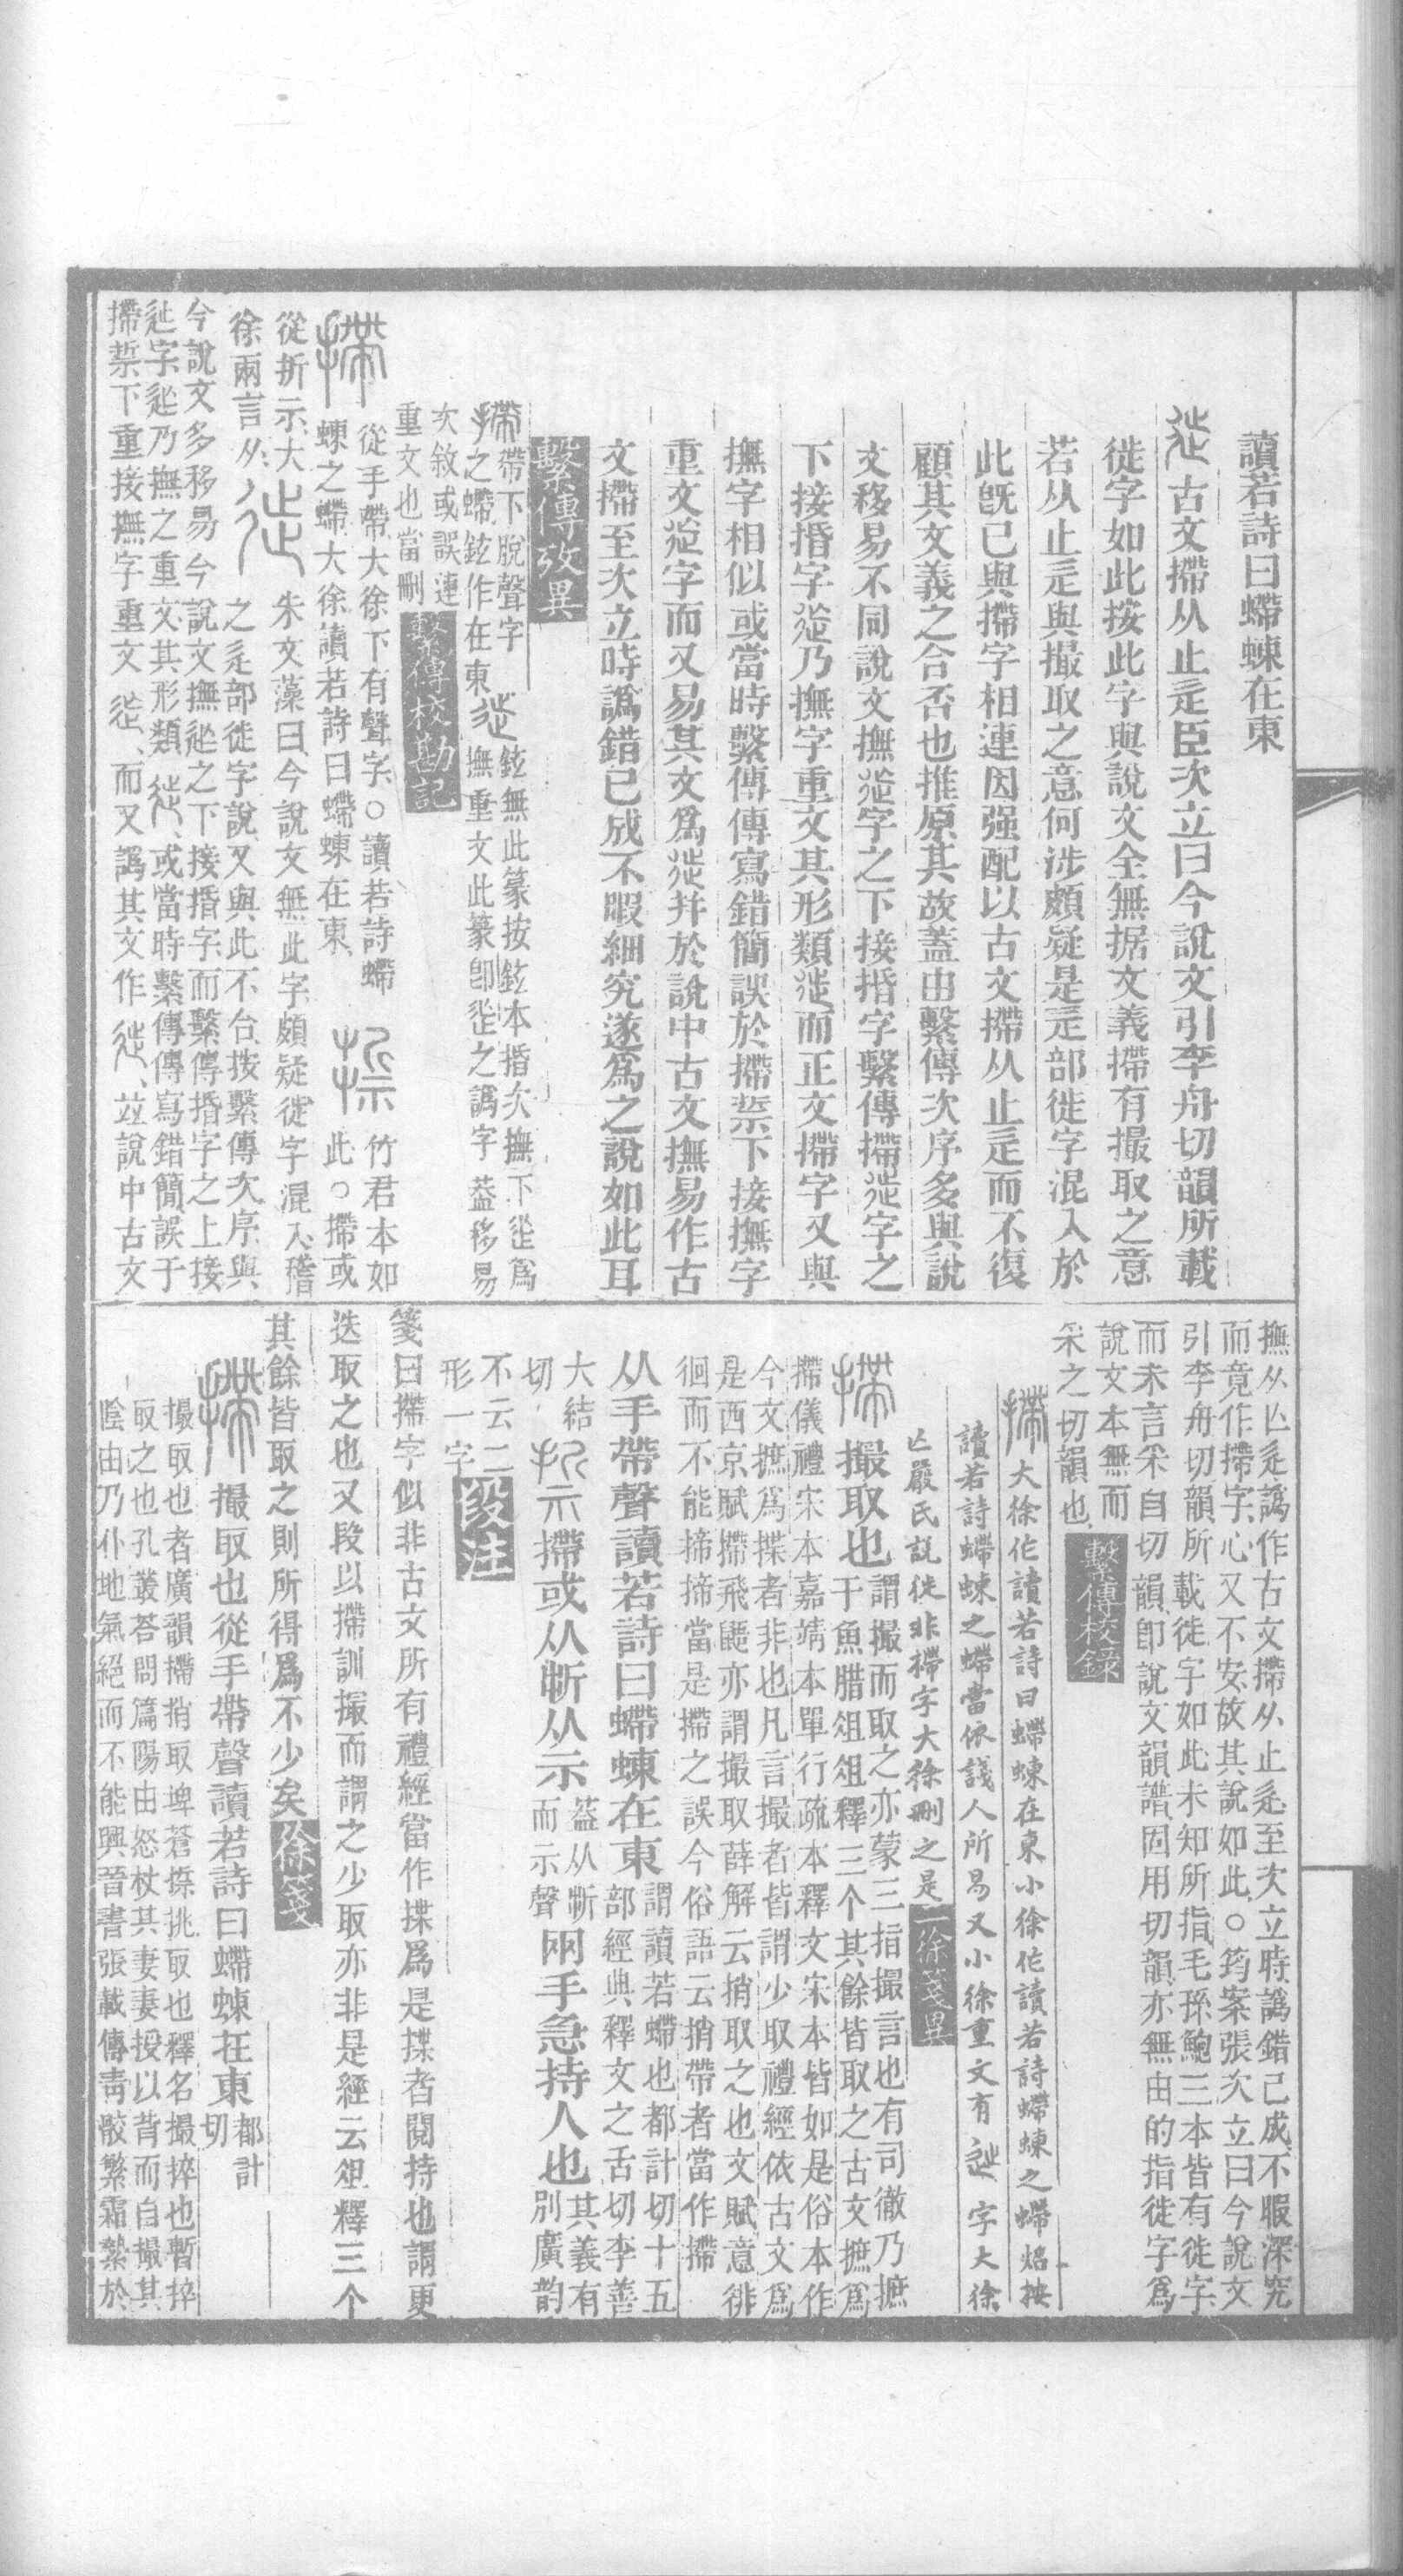 讀若詩曰螮蝀在東
古文摕从止辵臣次立曰今說文引李舟切韻所載
徙字如此按此字與說文全無据文義摕有撮取之意
若从止辵與撮取之意何涉頗疑是辵部徙字混入於
此旣已與摕字相連因强配以古文摕从止辵而不復
顧其文義之合否也推原其故蓋由繫傳次序多與說
文移易不同說文撫𨒋字之下接捪字繫傳摕𨒋字之
下接捪字𨒋乃撫字重文其形類𨒋而正文摕字又與
撫字相似或當時繫傳傳寫錯簡誤於摕𣂺下接撫字
重文𨒋字而又易其文爲𨒋并於說中古文撫易作古
文摕至次立時譌錯已成不暇細究遂爲之說如此耳
繫傳攷異
帶下脫聲字
之螮鉉作在東
鉉無此篆按鉉本捪次撫下𨒋爲
撫重文此篆卽𨒋之譌字葢移易
次敘或誤連
重文也當刪
繫傳校勘記
從手帶大徐下有聲字○讀若詩螮
蝀之螮大徐讀若詩曰螮蝀在東
竹君本如
此○摕或
從折示大
徐兩言从
朱文藻曰今說文無此字頗疑徙字混入
之辵部徙字說又與此不合按繫傳次序與
今說文多移易今說文撫𨒋之下接捪字而繫傳捪字之上接
𨒋字𨒋乃撫之重文其形類或當時繫傳傳寫錯簡誤于
摕𣂺下重接撫字重文而又譌其文作竝說中古文
撫从亾辵譌作古文摕从止辵至次立時譌錯已成不暇深究
而竟作摕字心又不安故其說如此○筠案張次立曰今說文
引李舟切韻所載徙字如此未知所指毛孫鮑三本皆有徙字
而未言采自切韻卽說文韻譜固用切韻亦無由的指徙字爲
說文本無而
采之切韻也
繫傳校錄
大徐作讀若詩曰螮蝀在東小徐作讀若詩螮蝀之螮焰按
讀若詩螮蝀之螮當依錢人所易又小徐重文有字大徐
亾嚴氏說徙非摕字大徐刪之是
二徐箋異
撮取也
謂撮而取之亦蒙三指撮言也有司徹乃摭
于魚腊俎俎釋三个其餘皆取之古文摭爲
摕儀禮宋本嘉靖本單行疏本釋文宋本皆如是俗本作
今文摭爲揲者非也凡言撮者皆謂少取禮經依古文爲
是西京賦摕飛鼯亦謂撮取薛解云捎取之也文賦意徘
徊而不能揥揥當是摕之誤今俗語云捎帶者當作摕
从手帶聲讀若詩曰螮蝀在東
謂讀若螮也都計切十五
部經典釋文之舌切李善
大結
切
摕或从𣂺从示
葢从𣂺
而示聲
网手急持人也
其義有
別廣韵
不云二
形一字
段注
箋曰摕字似非古文所有禮經當作揲爲是揲者閱持也謂更
迭取之也又段以摕訓撮而謂之少取亦非是經云俎釋三个
其餘皆取之則所得爲不少矣
徐箋
撮取也從手帶聲讀若詩曰螮蝀在東
都計
切
撮取也者廣韻摕捎取埤蒼搩挑取也釋名撮捽也暫捽
取之也孔叢荅問篇陽由怒杖其妻妻授以背而自撮其
陰由乃仆地氣絕而不能興晉書張載傳靑骹繁霜縶於